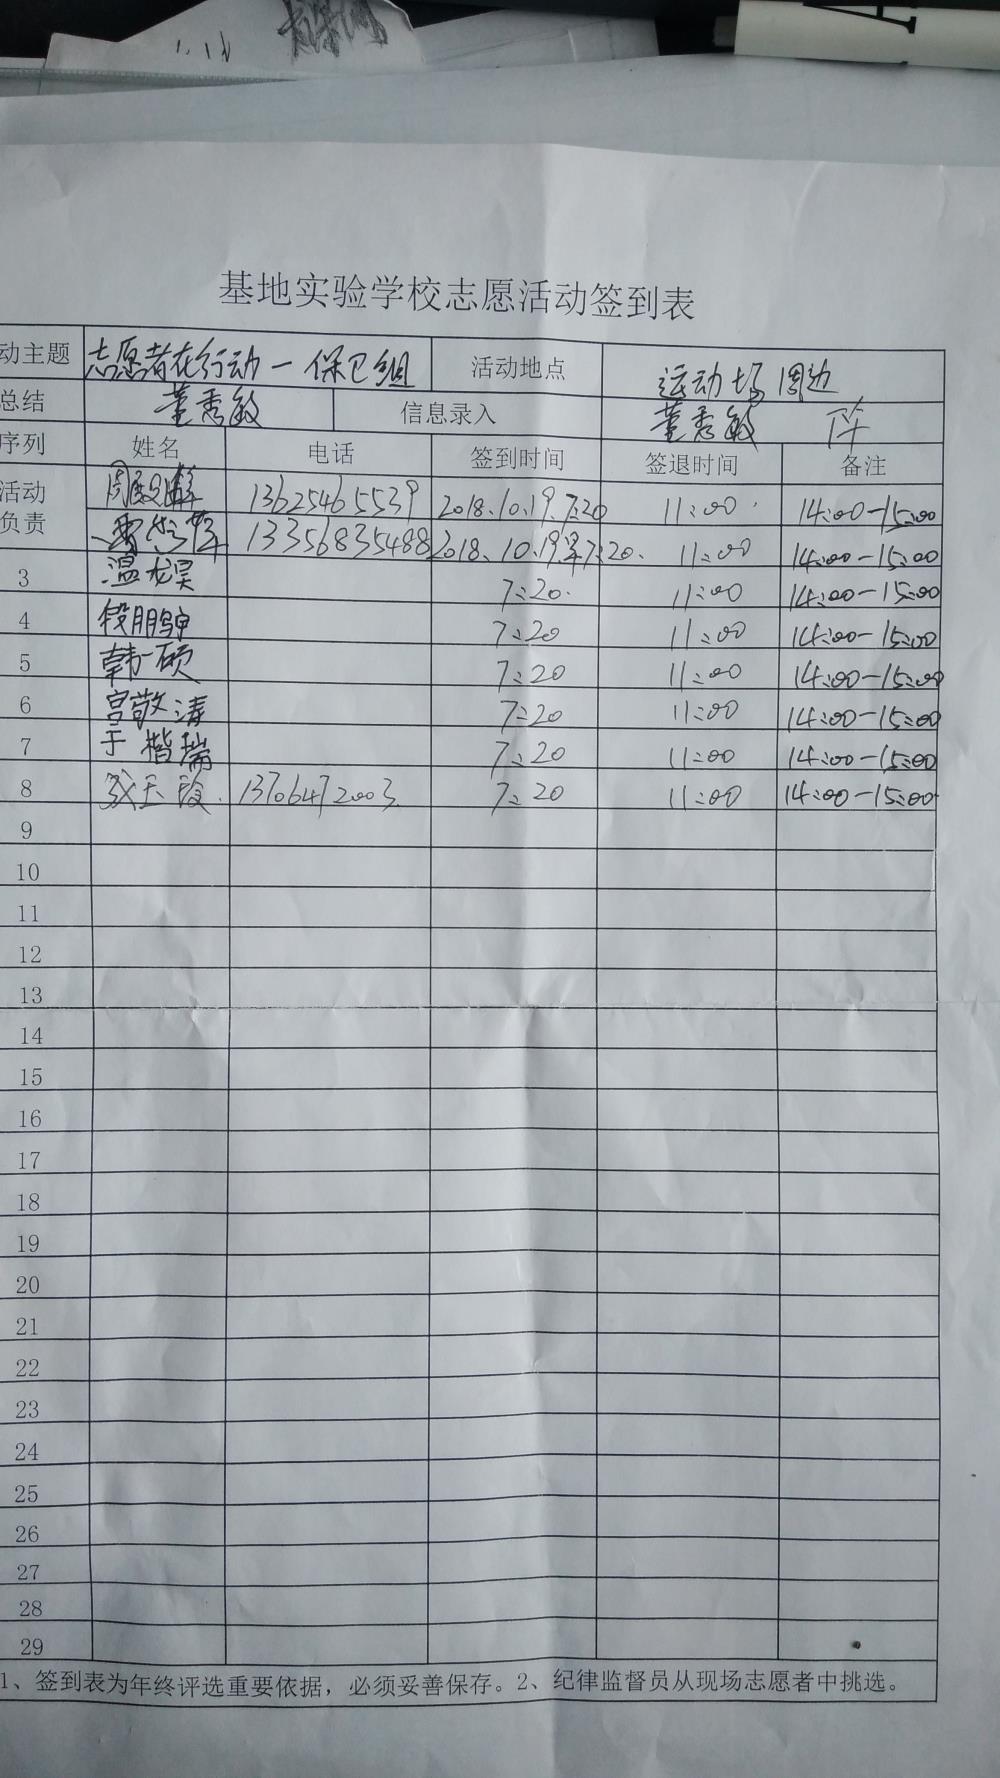 基地实验学校志愿活动签到表
动主题 志愿者在行动一保卫组 活动地点 运动场周边
总结 董秀敏 信息录入 董秀敏
序列 姓名 电话 签到时间 签退时间 备注
活动 13625465539 2018.10.19.7:20 11:00 14:00-15:00
负责 13356835488 2018.10.19 7:20. 11:00 14:00-15:00
3 温龙昊 7:20. 11:00 14:00-15:00
4 段鹏 7:20 11:00 14:00-15:00
5 韩一硕 7:20 11:00 14:00-15:00
6 宫敬涛 7:20 11:00 14:00-15:00
7 于楷瑞 7:20 11:00 14:00-15:00
8 13706472003. 7:20 11:00 14:00-15:00
9
10
11
12
13
14
15
16
17
18
19
20
21
22
23
24
25
26
27
28
29
1、签到表为年终评选重要依据，必须妥善保存。2、纪律监督员从现场志愿者中挑选。